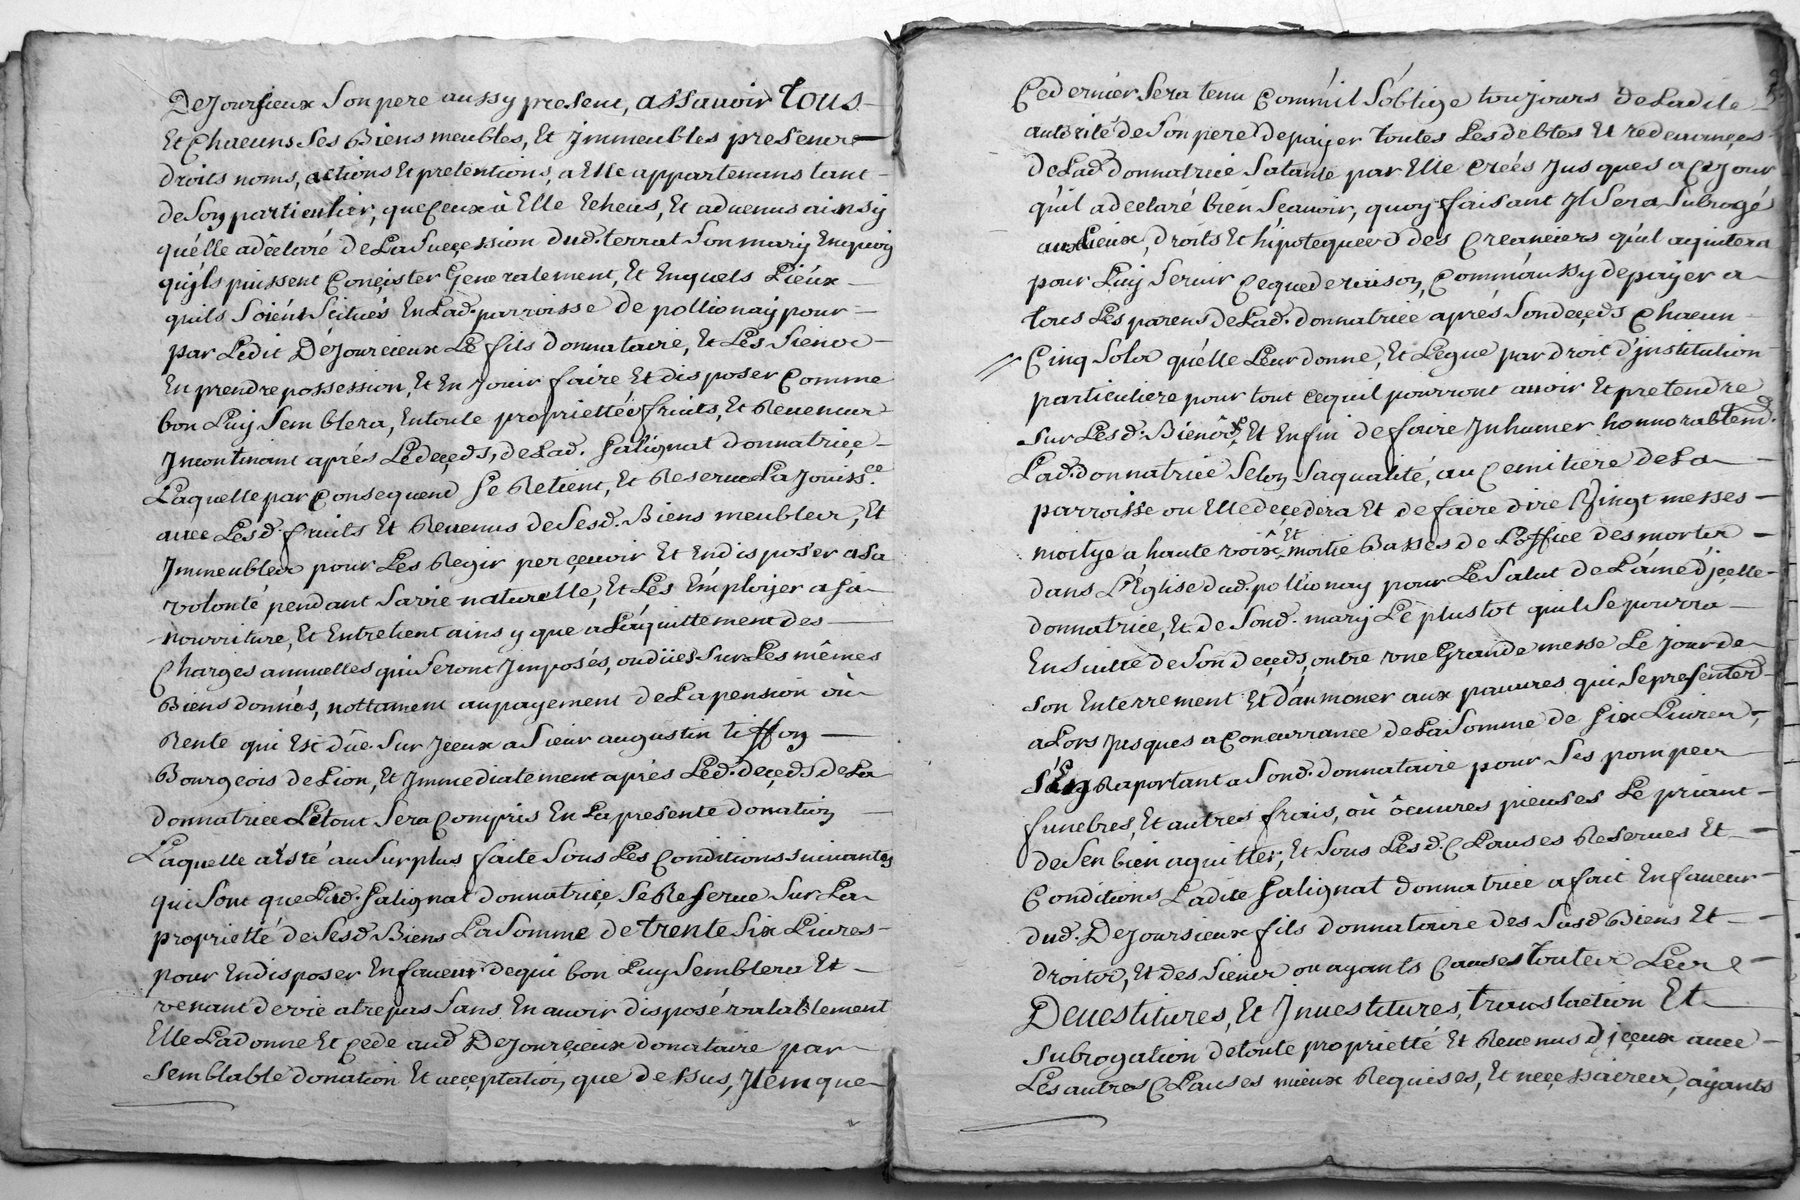 DeJoursieux son pere aussy present, assavoir tous
Et Chacuns Ses Biens meubles, Et Jmmeubles presens
droits noms, actions Et pretentions, a Elle appartenans tant
de Son particulier, que Ceux à Elle Echeus, Et advenus ainsy
qu'elle a déclaré de La Succession dud. terrat Son mary En quoy
qu'ils puissent Concister Generalement, Et En quels Lieux
quils Soient Scitués En Lad. parroisse de pollionay pour
par Ledit DeJourcieux Le fils donnataire, Et Les Siens
En prendre possession, Et En Jouir faire Et disposer Comme
bon Luy Semblera, En toute proprietté fruits, Et Revenus
Jncontinant aprés Le deceds, de Lad. Salignat donnatrice,
Laquelle par Consequend Se Retient, Et Reserve La Jouiss.ce
avec Lesd. fruits Et Revenus de Sesd. Biens meubles, Et
Jmmeubles pour Les Regir percevoir Et En disposer a Sa
volonté pendant Sa vie naturelle, Et Les Employer a Sa
nourriture, Et Entretient ainsy que a L'aquittement des
Charges annuelles qui Seront Jmposés, ou düet Sur Les mêmes
Biens donnés, nottament au payement de La pension où
Rente qui Est dûe Sur Jceux a Sieur augustin tiffon
Bourgeois de Lion, Et Jmmediatement aprés Led. deceds de La
donnatrice Le tout Sera Compris En La presente donation
Laquelle a Esté au Surplus faite Sous Les Conditions suivantes
qui Sont que Lad. Salignat donnatrice Se Reserve Sur La
proprietté de Sesd. Biens La Somme de trente Six Livres
pour En disposer En faveur de qui bon Luy Semblera Et
venant de vie a trepas Sans En avoir disposé valablement
Elle La donne Et Cede aud. DeJourcieux donataire par
semblable donation Et acceptation que dessus, Jtem que
Ce dernier Sera tenu Comm'il S'oblige toujours de Ladite
autorité de Son pere de payer toutes Les debtes Et redevances
de Lad. donnatrice par Elle Creés Jusques a Ce Jour
qu'il a declaré bien Sçavoir, quoy faisant Jl Sera Subrogé
aux Lieux, droits Et hipoteques des Creanciers qu'il aquitera
pour Luy Servir Ce que de raison, Comm'aussy de payer a
tous Les parens de Lad. donnatrice aprés Son decéds Chacun
Cinq Sols qu'elle Leur donne, Et Legue par droit d'jnstitution
particuliere pour tout Ce qu'il pourront avoir Et pretendre
sur Lesd. Biens, Et Enfin de faire Jnhumer honnorablemd.
Lad. donnatrice Selon Sa qualité, au Cemitiere de La
parroisse ou Elle decedera Et de faire dire Vingt messes
moitye a haute voix Et moitie Basses de L'office des morts
dans L'Eglise dud. pollionay pour Le Salut de L'ame d'jcelle
donnatrice, Et de Sond. mary Le plustot quil Se pourra
En Suitte de Son decéds, outre une Grande messe Le jour de
son Enterrement Et d'aumoner aux pauvres qui Se presenterd.
alors Jusques a Concurrance de La Somme de Six Livres,
S'En Raportant a Sond. donnataire pour Ses pompes
funebres, Et autres frais, où oeuvres pieuses Le priant
de S'en bien aquitter, Et Sous Lesd. Clauses Reserves Et
Conditions Ladite Salignat donnatrice a fait En faveur
dud. DeJoursieux fils donnataire des Susd. Biens Et
droits, Et des Siens ou ayants Causes toutes Leurs
Devestitures, Et Jnvestitures, translaction Et
subrogation de toute proprietté Et Revenus d'jceux avec
Les autres Clauses mieux Requises, Et necessaires, ayants